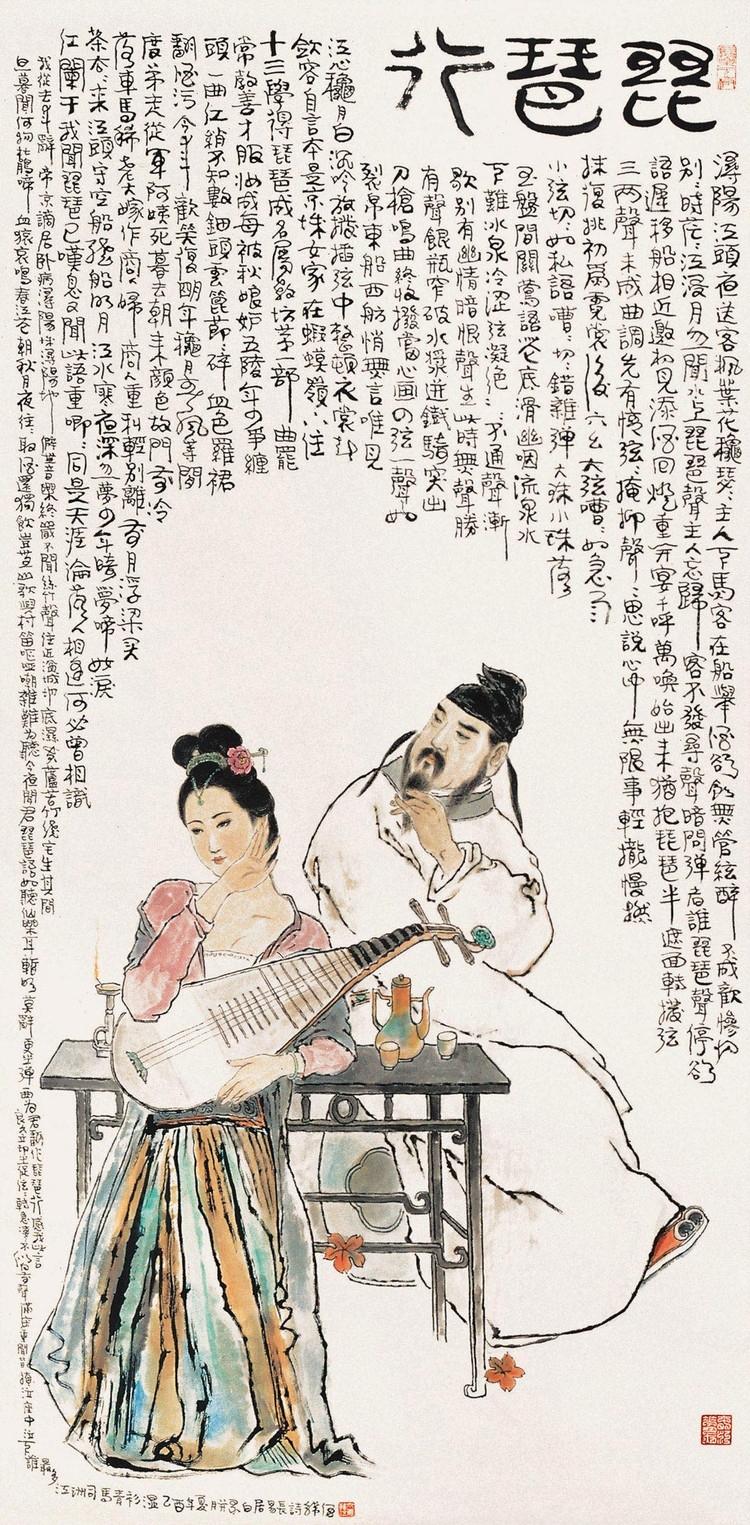 琵琶行
潯陽江頭夜送客楓葉花穐瑟〻主人下馬客在船舉酒欲飲無管絃醉不成歡慘將
別〻時茫〻江浸月勿聞水上琵琶聲主人忘歸客不發尋聲暗問彈者誰琵琶聲停欲
語遲移船相近邀相見添酒回燈重開宴千呼萬喚始出來猶抱琵琶半遮面轉撥弦
三兩聲未成曲調先有情弦〻掩抑聲〻思說心中無限事輕攏慢撚
抹復挑初爲霓裳後六幺大弦嘈〻如急雨
小弦切〻如私語嘈〻切〻錯雜彈大珠小珠落
玉盤間關鶯語花底滑幽咽流泉水
下難冰泉冷澀弦凝絕〻〻不通聲漸
歇別有幽情暗恨聲生此時無聲勝
有聲銀瓶窄破水漿迸鐵騎突出
刀槍鳴曲終收撥當心画四弦一聲如
裂帛東船西舫悄無言唯見
江心穐月白沉吟放撥插弦中整頓衣裳起
斂容自言本是京城女家在蝦蟆嶺下住
十三學得琵琶成名屬教坊第一部曲罷
常教善才服妝成每被秋娘妒五陵年少爭纏
頭一曲紅綃不知數鈿頭雲篦節碎血色羅裙
翻酒污今年歡笑復明年穐月春風等閒
度弟走從軍阿姨死暮去朝來顏色故門前冷
落車馬稀老大嫁作商人婦商人重利輕別離前月浮梁買
茶去〻來江頭守空船繞船明月江水寒夜深勿夢少年時夢啼妝淚
紅闌干我聞琵琶已嘆息又聞此語重唧〻同是天涯淪落人相逢何必曾相識
我從去年辭帝京謫居臥病潯陽城潯陽地僻無音樂終歲不聞絲竹聲住近湓城地底濕黃蘆苦竹繞宅生其間
旦暮聞何物杜鵑啼血猿哀鳴春江花朝秋月夜往〻取酒還獨飲豈無山歌與村笛嘔啞嘲雜難爲聽今夜聞君琵琶語如聽仙樂耳暫明莫辭更坐彈一曲爲君翻作琵琶行感我此言
良久立却坐促弦〻轉急淒〻不似向前聲滿座重聞皆掩泣座中泣下誰最多
江洲司馬青衫濕乙酉年夏月白居易長詩